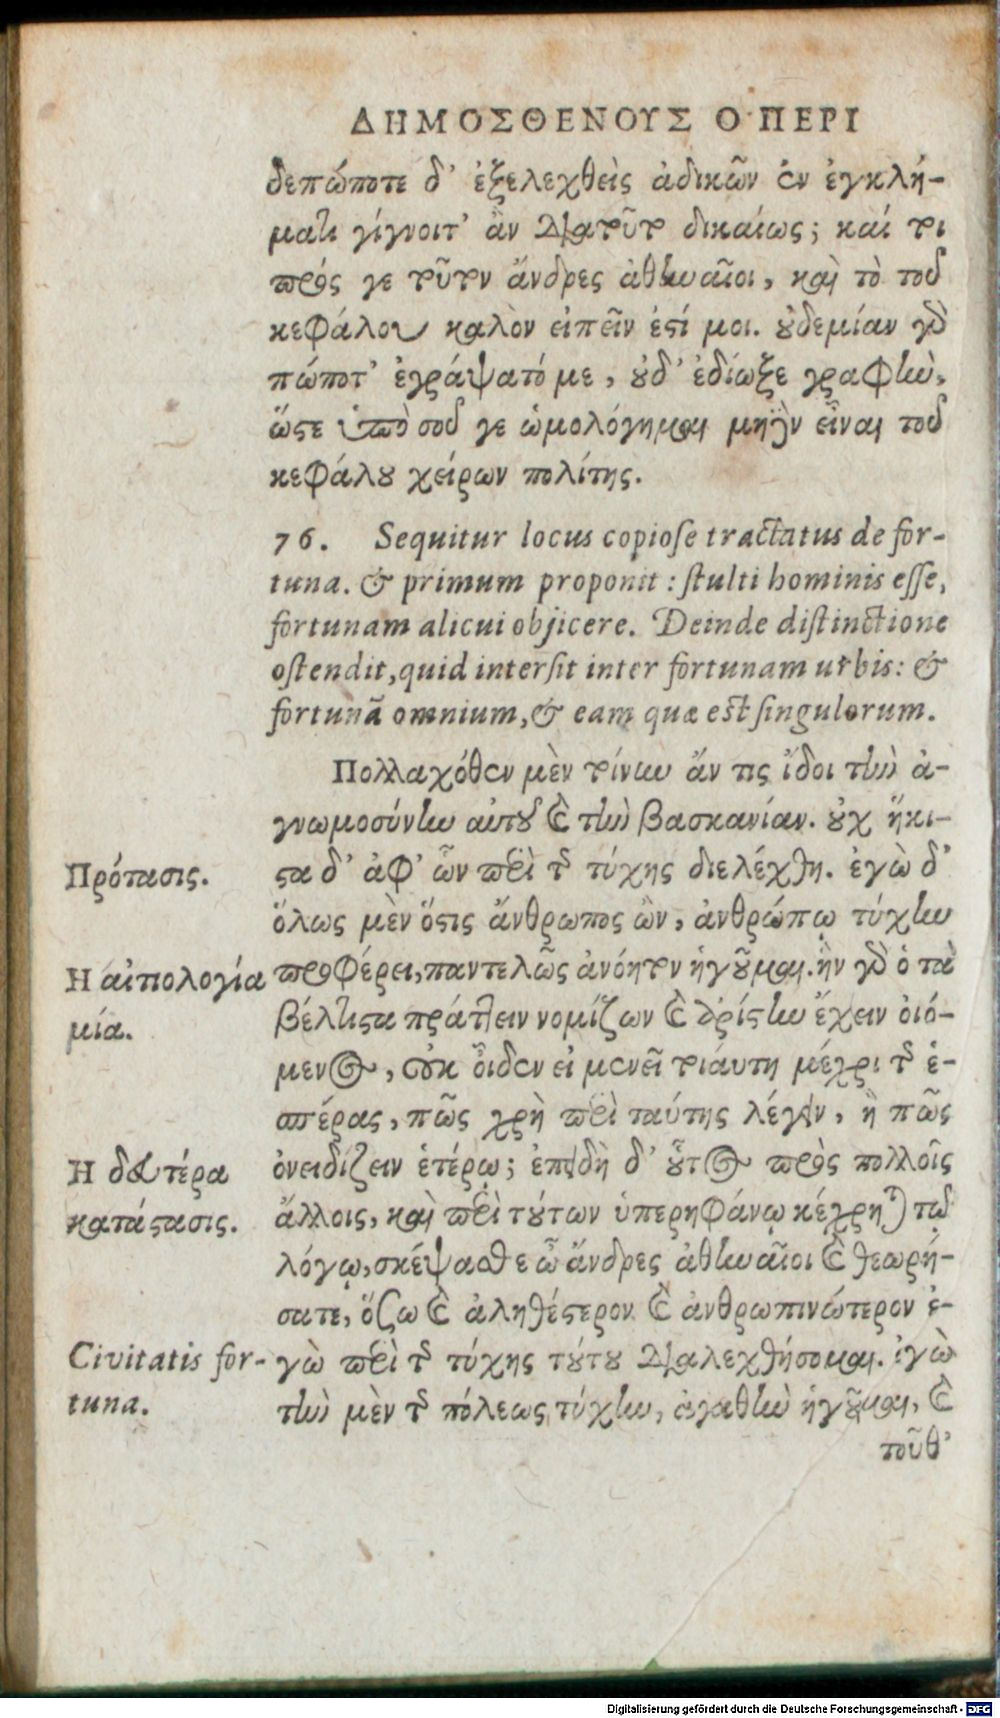 ΔΗΜΟΣΘΕΝΟΥΣ Ο ΠΕΡΙ
δεπώποτε δ' ἐξελεχθεὶς ἀδικῶν ἐν ἐγκλή-
ματι γίγνοιτ' ἂν διὰ τοῦτο δικαίως; καί τοι
πρός γε τοῦτον ἄνδρες ἀθηναῖοι, καὶ τὸ τοῦ
κεφάλου καλὸν εἰπεῖν ἐστί μοι. οὐδεμίαν γὰρ
πώποτ' ἐγράψατό με, οὐδ' ἐδίωξε γραφὴν,
ὥστε ὑπὸ σοῦ γε ὡμολόγημαι μηδὲν εἶναι τοῦ
κεφάλου χείρων πολίτης.
76. Sequitur locus copiose tractatus de for-
tuna. & primum proponit: stulti hominis esse,
fortunam alicui objicere. Deinde distinctione
ostendit, quid intersit inter fortunam urbis: &
fortunā omnium, & eam quæ est singulorum.
Πολλαχόθεν μὲν τοίνυν ἄν τις ἴδοι τὴν ἀ-
γνωμοσύνην αὐτοῦ καὶ τὴν βασκανίαν. οὐχ ἥκι-
Πρότασις.
στα δ' ἀφ' ὧν περὶ τῆς τύχης διελέχθη. ἐγὼ δ'
ὅλως μὲν ὅστις ἄνθρωπος ὢν, ἀνθρώπῳ τύχην
Ἡ αἰτιολογία
προφέρει, παντελῶς ἀνόητον ἡγοῦμαι. ἣν γὰρ ὁ τὰ
μία.
βέλτιστα πράττειν νομίζων καὶ ἀρίστην ἔχειν οἰό-
μενος, οὐκ οἶδεν εἰ μενεῖ τοιαύτη μέχρι τῆς ἑ-
σπέρας, πῶς χρὴ περὶ ταύτης λέγειν, ἢ πῶς
Ἡ δευτέρα
ὀνειδίζειν ἑτέρῳ; ἐπειδὴ δ' οὗτος πρὸς πολλοῖς
κατάστασις.
ἄλλοις, καὶ περὶ τούτων ὑπερηφάνῳ κέχρηται τῷ
λόγῳ, σκέψασθε ὦ ἄνδρες ἀθηναῖοι καὶ θεωρή-
σατε, ὅσῳ καὶ ἀληθέστερον καὶ ἀνθρωπινώτερον ἐ-
Civitatis for-
γὼ περὶ τῆς τύχης τούτου διαλεχθήσομαι. ἐγὼ
tuna.
τὴν μὲν τῆς πόλεως τύχην, ἀγαθὴν ἡγοῦμαι, καὶ
τοῦθ'
Digitalisierung gefördert durch die Deutsche Forschungsgemeinschaft - DFG